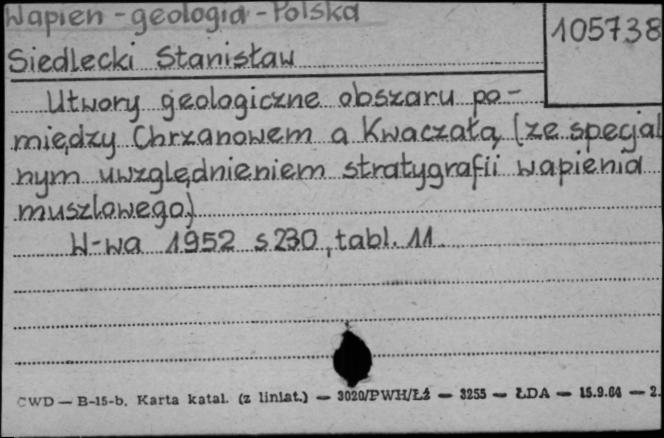 Wapień - geologia - Polska
105738
Siedlecki Stanisław
Utwory geologiczne obszaru po-
między Chrzanowem a Kwaczałą (ze specjal
nym uwzględnieniem stratygrafii wapienia
muszlowego)
W-wa 1952 s.230, tabl. 11.
CWD — B-15-b. Karta katal. (z liniat.) — 3020/PWH/Łź — 3255 — ŁDA — 15.9.64 — 2.